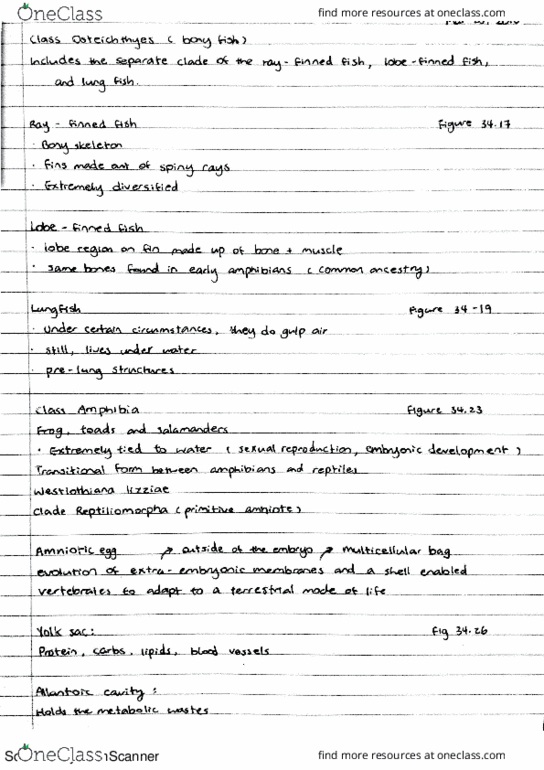 OneClass
find more resources at oneclass.com
Class Osteichthyes ( bony fish )
Includes the separate clade of the ray-finned fish, lobe-finned fish,
and lung fish.
Ray - finned fish
Figure 34.17
· Bony skeleton
· Fins made out of spiny rays
· Extremely diversified
Lobe - finned fish
· lobe region on fin made up of bone + muscle
· same bones found in early amphibians ( common ancestry )
Lungfish
Figure 34-19
· under certain circumstances, they do gulp air
· still, lives under water
· pre-lung structures
Class Amphibia
Figure 34.23
Frog, toads and salamanders
· Extremely tied to water ( sexual reproduction, embryonic development )
Transitional form between amphibians and reptiles
Westlothiana lizziae
Clade Reptiliomorpha ( primitive amniote )
Amniotic egg → outside of the embryo → multicellular bag
evolution of extra-embryonic membranes and a shell enabled
vertebrates to adapt to a terrestrial mode of life
Yolk sac:
Fig 34.26
Protein, carbs, lipids, blood vessels
Allantoic cavity:
Holds the metabolic wastes
OneClass
Scanner
find more resources at oneclass.com